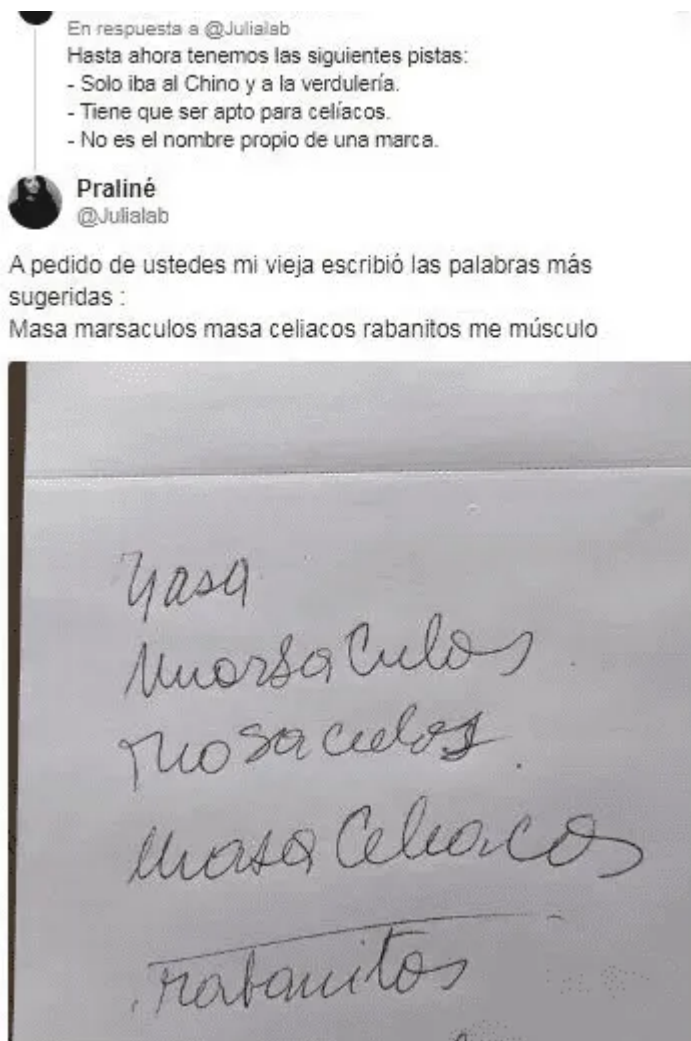 En respuesta a @Julialab
Hasta ahora tenemos las siguientes pistas:
- Solo iba al Chino y a la verdulería.
- Tiene que ser apto para celíacos.
- No es el nombre propio de una marca.
Praliné
@Julialab
A pedido de ustedes mi vieja escribió las palabras más
sugeridas :
Masa marsaculos masa celiacos rabanitos me músculo
Masa
MarsaCulos
Mosaculos
Masa Celiacos
Rabanitos